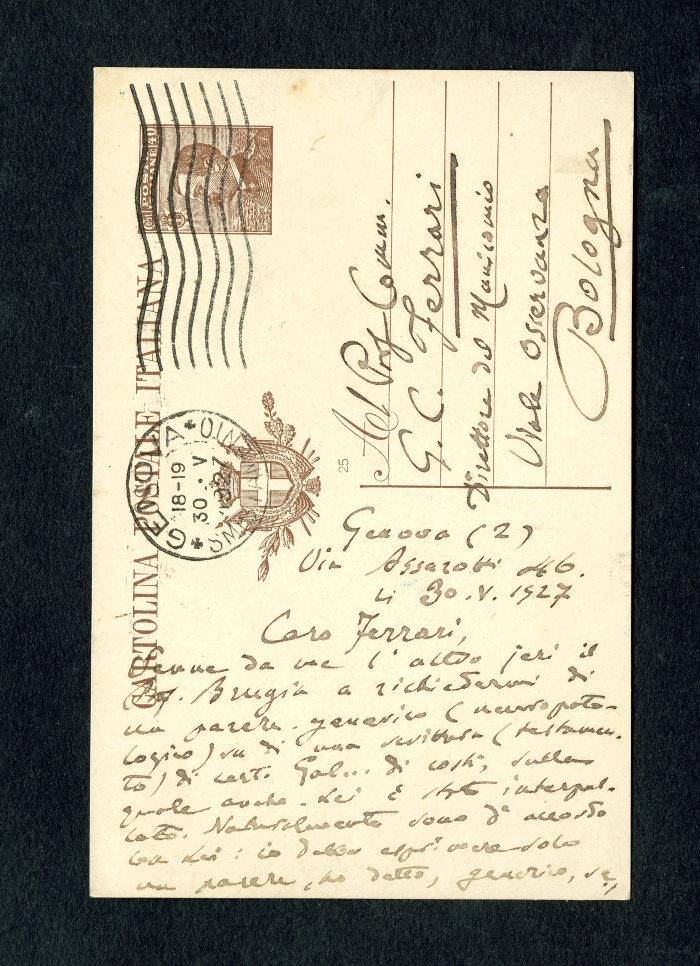 CARTOLINA POSTALE ITALIANA
POSTE ITALIANE
40
GENOVA
18-19
30. V
1927
25
Al Prof Comm.
G. C. Ferrari
Direttore del Manicomio
Viale Osservanza
Bologna
Genova (2)
Via Assarotti 46.
li 30. V. 1927
Caro Ferrari,
Venne da me l'altro jeri il
Prof. Brugia a richiedermi di
un parere generico (neuropato-
logico) su di una scrittura (testamen-
to) di certi Gal... di costì, sulla
quale anche Lei è stato interpel-
lato. Naturalmente sono d'accordo
con Lei: io debbo esprimere solo
un parere, ho detto, generico, se,